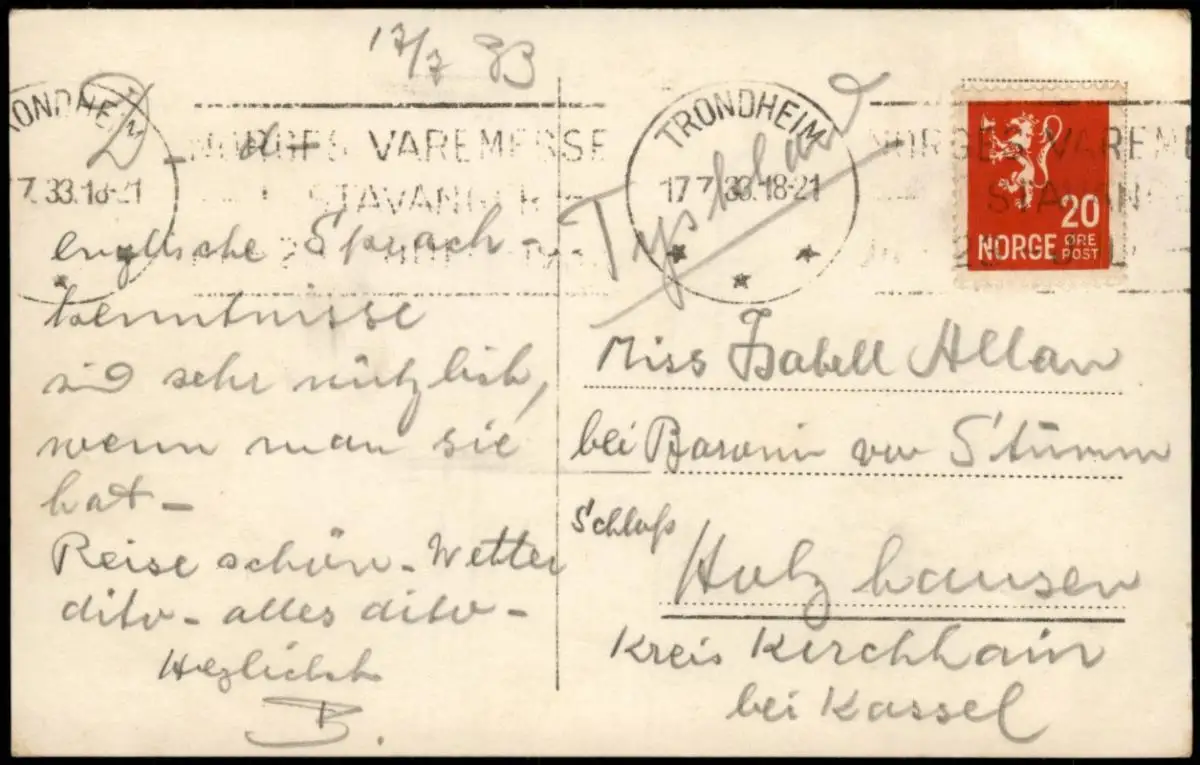 17/7 33
TRONDHEIM
17.7.33.18-21
NORGES VAREMESSE
STAVANGER
TRONDHEIM
17.7.33.18-21
NORGES VAREME
STAVANGE
20
NORGE ØRE
POST
Tyskland
D
englische Sprach-
kenntnisse
sind sehr nützlich,
wenn man sie
hat –
Reise schön – Wetter
dito – alles dito –
Herzlichst
B.
Miss Isabell Allan
bei Baronin von Stumm
Schloß
Holzhausen
Kreis Kirchhain
bei Kassel